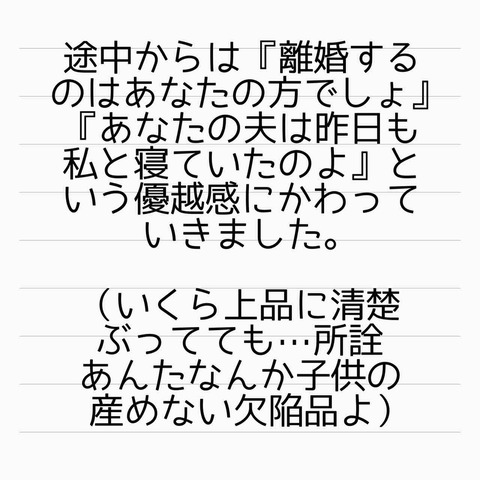 途中からは『離婚する
のはあなたの方でしょ』
『あなたの夫は昨日も
私と寝ていたのよ』と
いう優越感にかわって
いきました。
（いくら上品に清楚
ぶってても…所詮
あんたなんか子供の
産めない欠陥品よ）